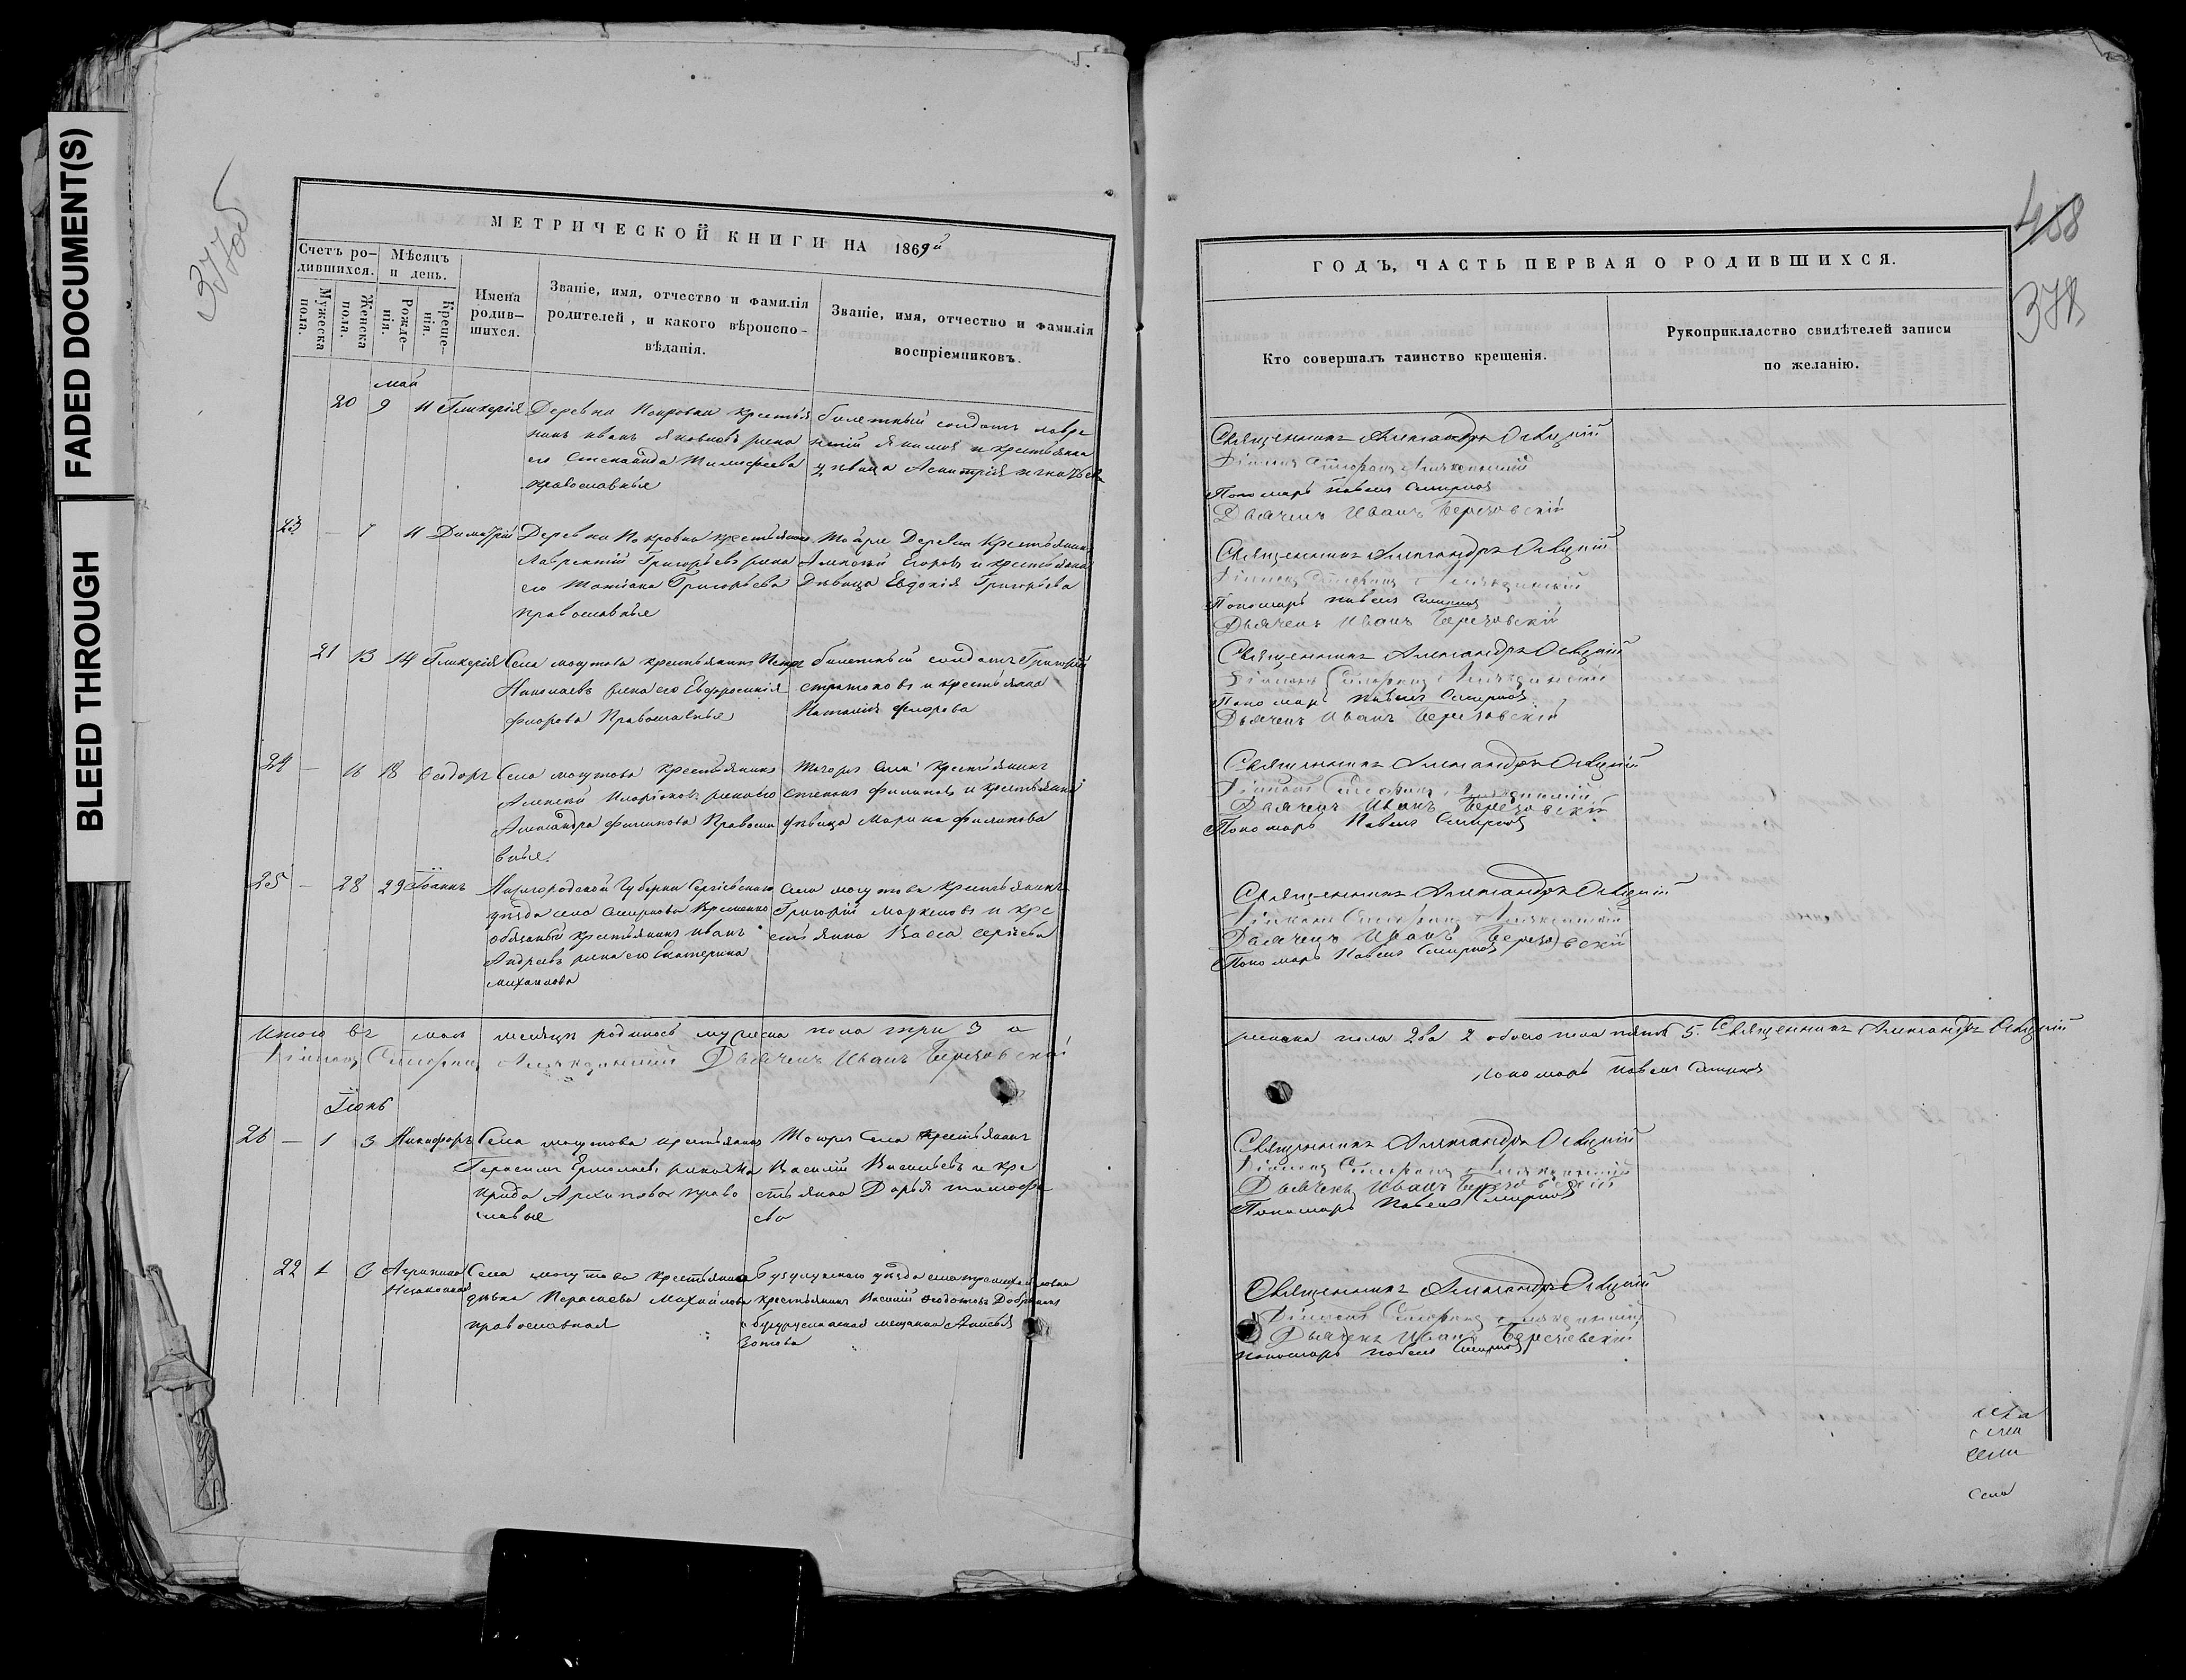 FADED DOCUMENT(S)
BLEED THROUGH
377об
МЕТРИЧЕСКОЙ КНИГИ НА 1869й
Счетъ ро-
дившихся.
Мужеска пола.
Женска пола.
Мѣсяцъ
и день.
Рожде-
нія.
Креще-
нія.
Имена
родив-
шихся.
Званіе, имя, отчество и фамилія
родителей, и какого вѣроиспо-
вѣданія.
Званіе, имя, отчество и фамилія
воспріемниковъ.
май
20 9 11 Гликерія Деревни Покровки крестья
нинъ иванъ Яковлевъ жена
его Степанида Тимофеева
православные
билетный солдатъ лавре
нтій Якимов и крестьянка
дѣвица
23 – 7 11 Димитрій Деревни Покровки крестьянинъ
Лаврентій Григорьевъ жена
его Татіана Григорьева
православные
Тойже Деревни Крестьянинъ
Алексѣй Егоровъ и крестьянка
Дѣвица Евдокія Григорьева
21 13 14 Гликерія Села могутова крестьянинъ Петръ
Николаевъ жена его Евфросинія
флорова Православные
билетный солдатъ Григорій
и крестьянка
Наталія флорова
24 – 16 18 Феодоръ Села могутова Крестьянинъ
Алексѣй жена его
Александра филипова Правосла
вные.
Тогоже Села Крестьянинъ
Степанъ филиповъ и крестьянка
дѣвица Марина филипова
25 – 28 29 Іоаннъ Нижегородской Губерніи Сергіевскаго
уѣзда села Смирнова Временно
обязанный крестьянинъ иванъ
Андреевъ жена его Екатерина
михаилова
Села могутова крестьянинъ
Григорій Маркеловъ и кре
стьянка Васа Сергѣева
Итого въ маѣ месяцѣ родилось мужеска пола три 3 а
Діаконъ Дьячекъ Иванъ Березовскій
Іюнь
26 – 1 3 Никифоръ Села могутова крестьянинъ
Герасимъ Ермолаевъ жена его Ма
Архипова право
славные
Тогоже Села Крестьянинъ
Василій Васильевъ и кре
стьянка Дарья тимофе
ева
22 1 3 Агрипина
Незаконная
Села могутова крестьянка
дѣвка Михаилова
православная
Бузулукскаго уѣзда села
крестьянинъ Василій Федотовъ
и бугурусланская мещанка Анисья
Зотова
ГОДЪ, ЧАСТЬ ПЕРВАЯ О РОДИВШИХСЯ.
458
378
Кто совершалъ таинство крещенія.
Рукоприкладство свидѣтелей записи
по желанію.
Священникъ Александръ
Діаконъ
Пономарь Павелъ Смирнов
Дьячекъ Иванъ Березовскій
Священникъ Александръ
Діаконъ
Пономарь павелъ Смирнов
Дьячекъ Иванъ Березовскій
Священникъ Александръ
Діаконъ
Пономарь павелъ Смирнов
Дьячекъ Иванъ Березовскій
Священникъ Александръ
Діаконъ
Дьячекъ Иванъ Березовскій
Пономарь Павелъ Смирнов
Священникъ Александръ
Діаконъ
Дьячекъ Иванъ Березовскій
Пономарь Павелъ Смирнов
женска пола два 2 обоего пола пять 5. Священникъ Александръ
пономарь павелъ Смирнов
Священникъ Александръ
Діаконъ
Дьячекъ Иванъ Березовскій
Пономарь Павелъ Смирнов
Священникъ Александръ
Діаконъ
Дьячекъ Иванъ Березовскій
пономарь павелъ Смирнов
села
села
села
села